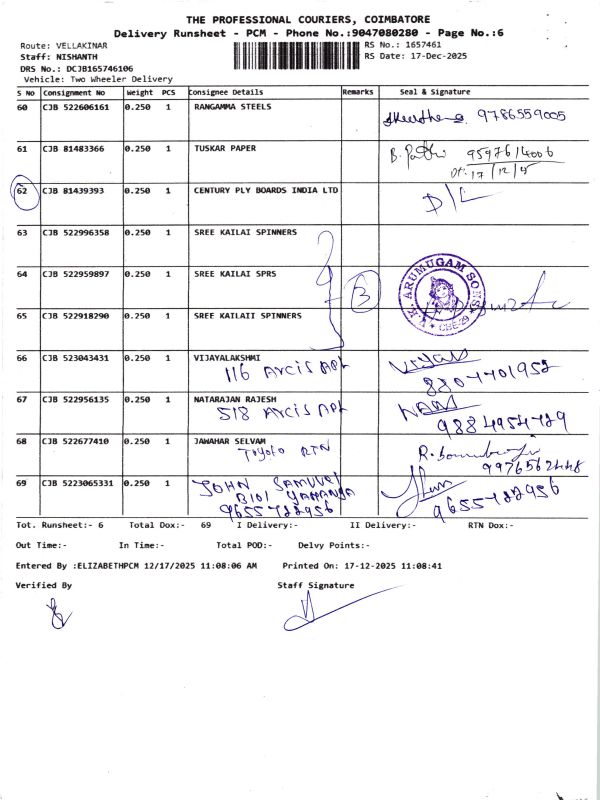 THE PROFESSIONAL COURIERS, COIMBATORE
Delivery Runsheet - PCM - Phone No.:9047080280 - Page No.:6
Route: VELLAKINAR
RS No.: 1657461
Staff: NISHANTH
RS Date: 17-Dec-2025
DRS No.: DCJB165746106
Vehicle: Two Wheeler Delivery
S No Consignment No Weight PCS Consignee Details Remarks Seal & Signature
60 CJB 522606161 0.250 1 RANGAMMA STEELS
9786559005
61 CJB 81483366 0.250 1 TUSKAR PAPER
9597614006
17/12/
62 CJB 81439393 0.250 1 CENTURY PLY BOARDS INDIA LTD
D/L
63 CJB 522996358 0.250 1 SREE KAILAI SPINNERS
64 CJB 522959897 0.250 1 SREE KAILAI SPRS
3
V.K ARUMUGAM SONS
CBE-29
65 CJB 522918290 0.250 1 SREE KAILAII SPINNERS
66 CJB 523043431 0.250 1 VIJAYALAKSHMI
116 Arcis APt
8807701952
67 CJB 522956135 0.250 1 NATARAJAN RAJESH
518 Arcis APt
9884954729
68 CJB 522677410 0.250 1 JAWAHAR SELVAM
Toyoto RTN
9976562448
69 CJB 5223065331 0.250 1 JOHN SAMUVEL
B101
9655722956
9655722956
Tot. Runsheet:- 6 Total Dox:- 69 I Delivery:- II Delivery:- RTN Dox:-
Out Time:- In Time:- Total POD:- Delvy Points:-
Entered By :ELIZABETHPCM 12/17/2025 11:08:06 AM Printed On: 17-12-2025 11:08:41
Verified By Staff Signature